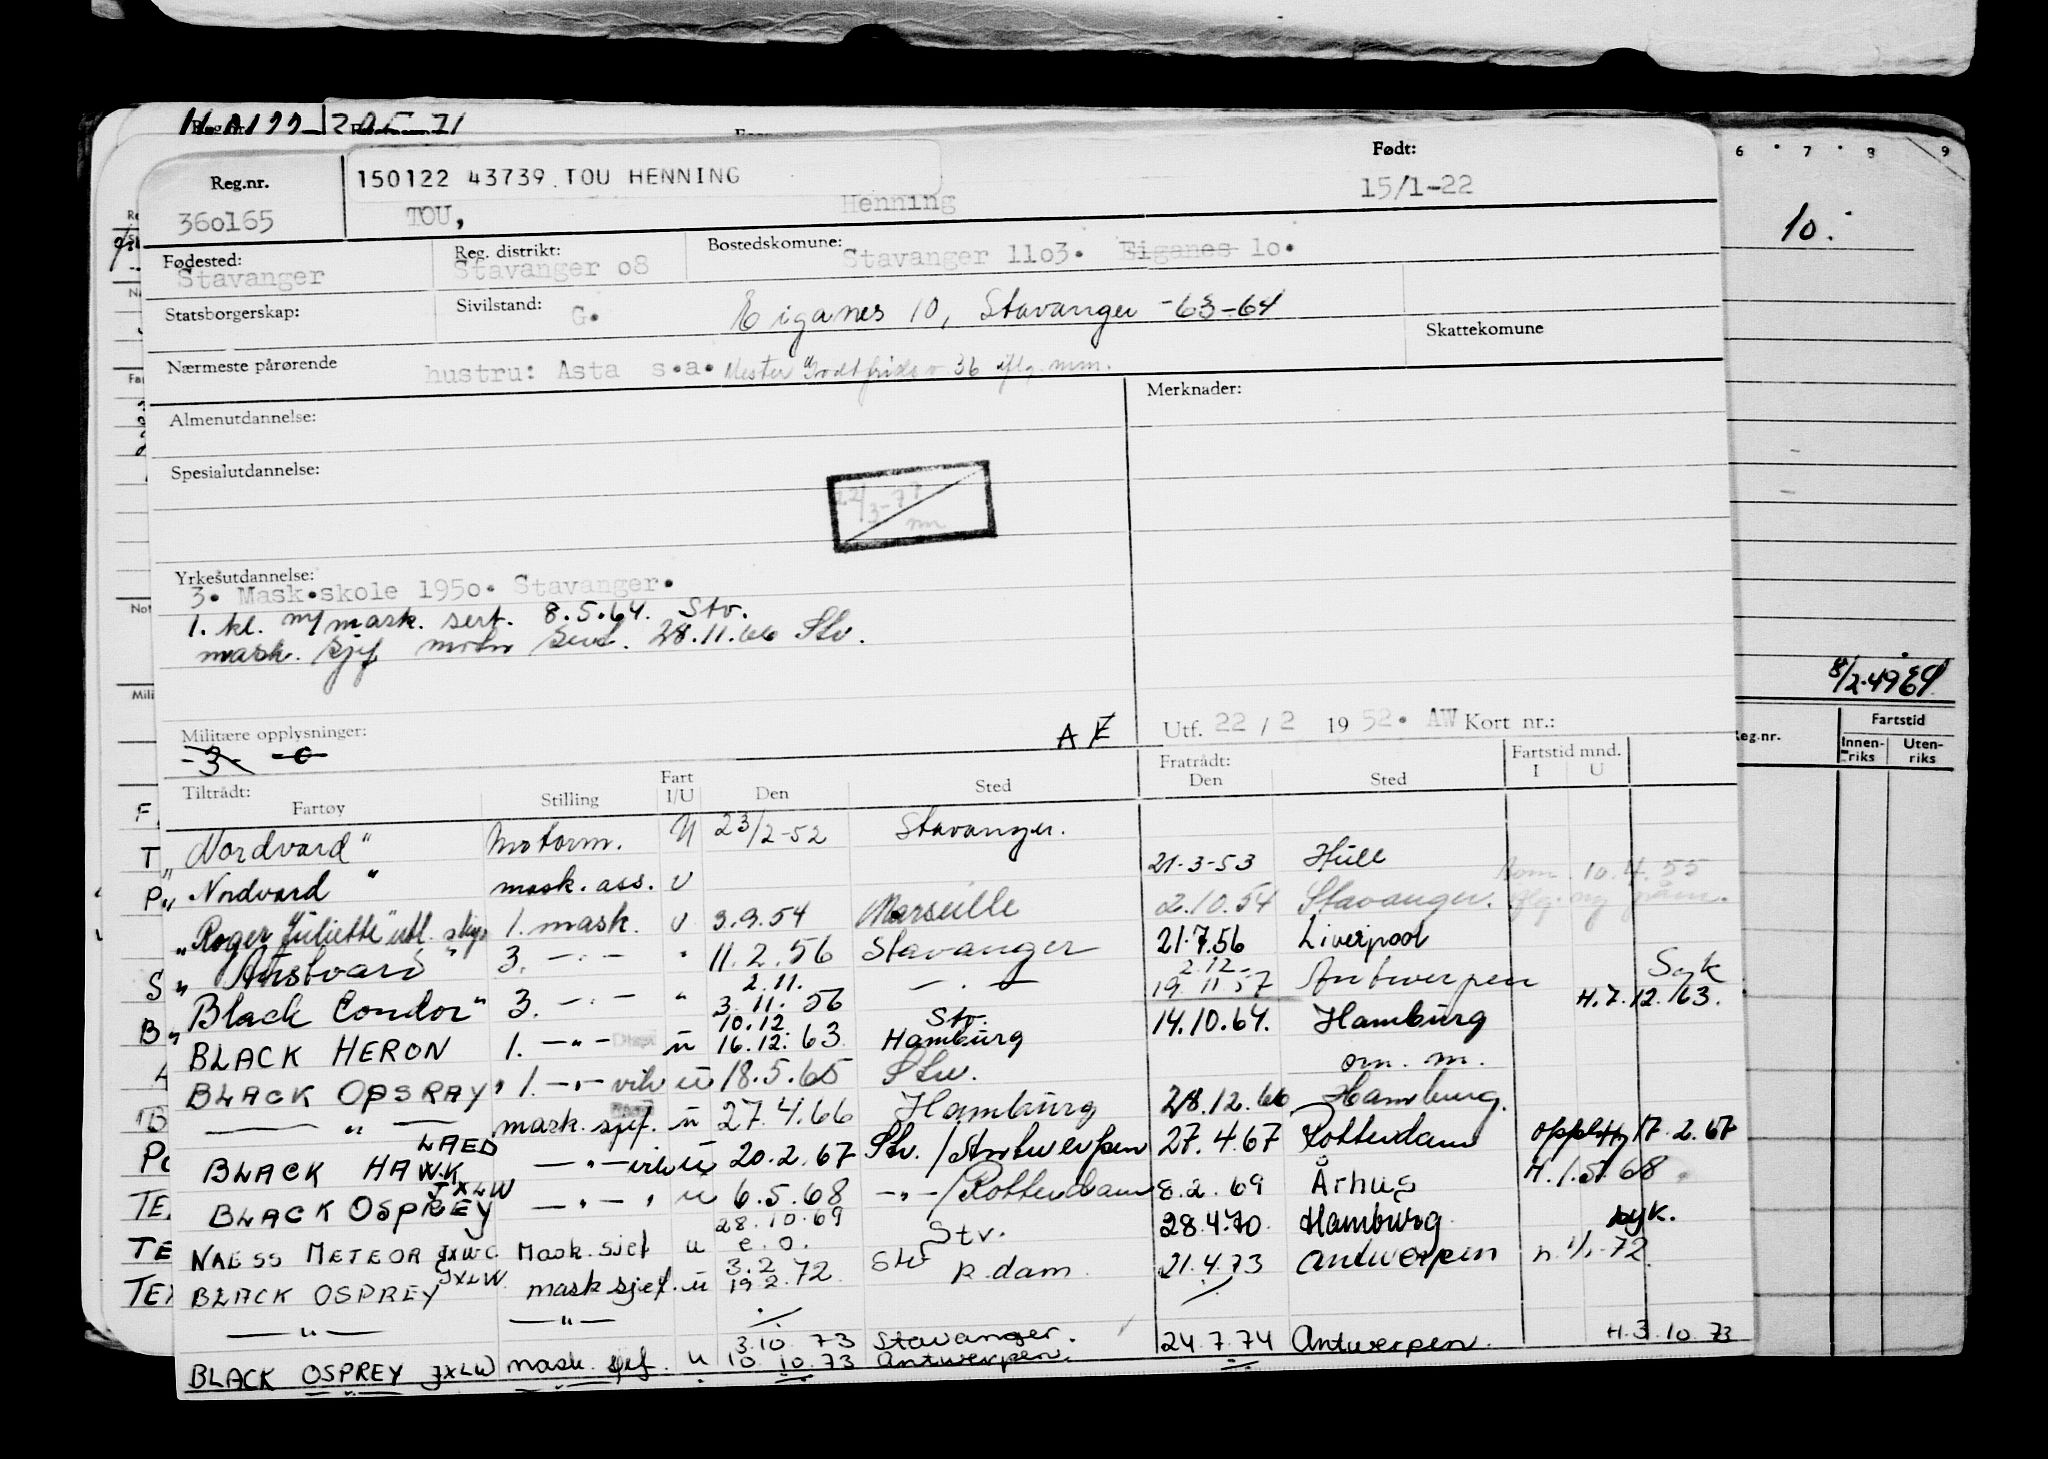 Reg.nr.
150122 43739 TOU HENNING
Født:
36o165
TOU,
Henning
15/1-22
Fødested:
Stavanger
Reg. distrikt:
Stavanger o8
Bostedskomune:
Stavanger 11o3. Eiganes 1o.
Statsborgerskap:
Sivilstand:
G.
Eiganes 10, Stavanger -63-64
Skattekomune
Nærmeste pårørende
hustru: Asta s.a. Mester Godtfrids v. 36 iflg. mm.
Almenutdannelse:
Merknader:
Spesialutdannelse:
Yrkesutdannelse:
3. Mask.skole 195o. Stavanger.
1. kl. m/mask. sert. 8.5.64. Stv.
mask. sjef motor sert. 28.11.66 Stv.
Militære opplysninger:
-3- -c-
A E
Utf. 22 / 2 19 52. AW Kort nr.:
Tiltrådt:
Fartøy
Stilling
Fart I/U
Den
Sted
Fratrådt:
Den
Sted
Fartstid mnd.
I U
"Nordvard" Motorm. U 23/2-52 Stavanger. 21-3-53 Hull
" Nordvard " mask. ass. U 2.10.54 Stavanger.
"Roger Juliette" utl. skip 1. mask. U 3.9.54 Marseille 21.7.56 Liverpool
" Austvard " 3. -"- " 11.2.56 Stavanger 2.12.
19.11.57 Antwerpen Syk
"Black Condor" 3. -"- " 2.11.
3.11.56 - " - 14.10.64. Hamburg H.7.12.63.
BLACK HERON 1. -"- u 10.12.
16.12.63 Stv.
Hamburg om. m.
BLACK OPSRAY, 1. -"- vik u 18.5.65 Stv. 28.12.66 Hamburg.
—— " —— mask. sjef. u 27.4.66 Hamburg 27.4.67 Rotterdam opph. 17.2.67
BLACK HAWK LAED -"- vik u 20.2.67 Stv. / Antwerpen 8.2.69 Århus H.1.5.68
BLACK OSPREY JXLW -"- " u 6.5.68 -"- / Rotterdam 28.4.70 Hamburg syk.
NAESS METEOR JXWC Mask.sjef u 28.10.69
e.o. Stv. 21.4.73 Antwerpen h. 1/1-72
BLACK OSPREY JXLW mask sjef. u 3.2
19.2.72 Stv R.dam
—— " —— —"—
BLACK OSPREY JXLW mask. sjef. u 3.10.73
10.10.73 Stavanger.
Antwerpen. 24.7.74 Antwerpen. H.3.10.73
6 7 8 9
10.
8/2-49
Reg.nr.
Fartstid
Innen-
riks
Uten-
riks